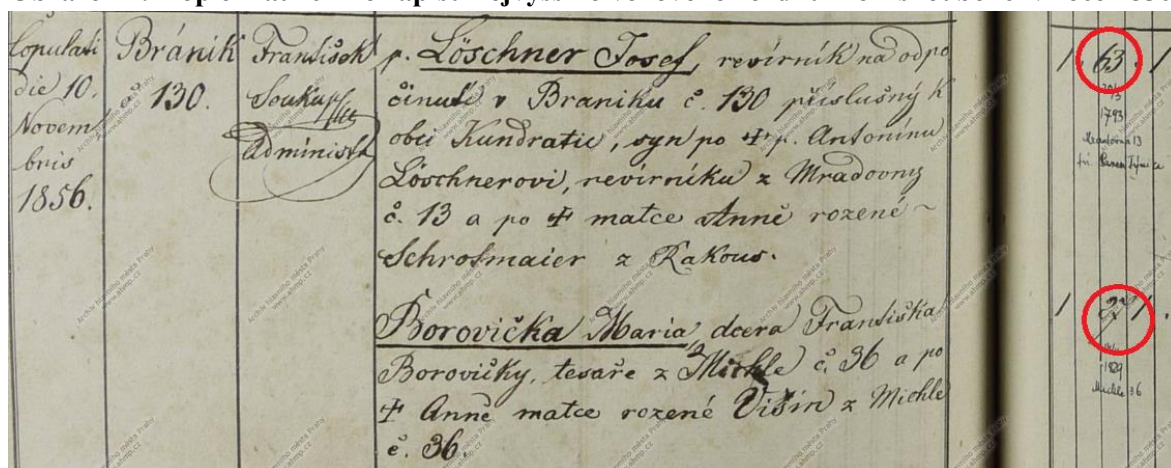 Copulati
die 10.
Novem
bris
1856.
Bránik
130.
František
Soukup
Administr
p. Löschner Josef, revírník na odpo
činutí v Braníku č. 130 příslušný k
obci Kundratic, syn po ☩ p. Antonínu
Löschnerovi, revírníku z Mradovny
č. 13 a po ☩ matce Anně rozené
Schrofmaier z Rakous.
Borovička Maria, dcera Františka
Borovičky, tesaře z Michle č. 36 a po
☩ Anně matce rozené Višín z Michle
č. 36.
1 63. 1
1793
1 27 1.
1829
Michle 36
Archiv hlavního města Prahy
www.ahmp.cz